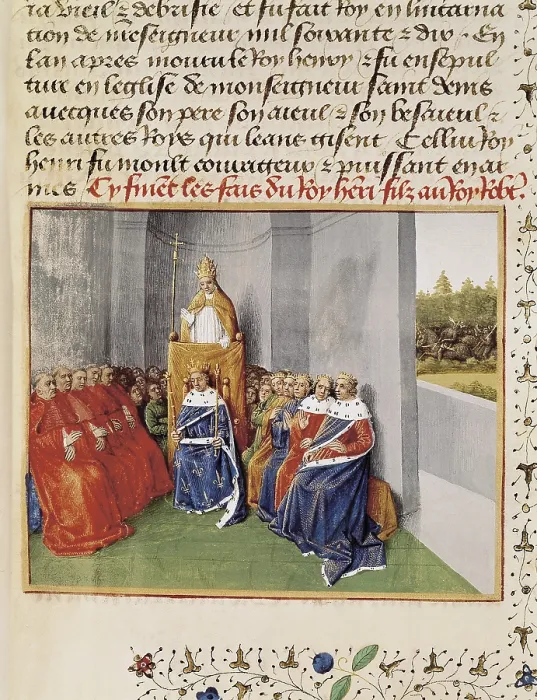 ia vieil & debrisie et fu fait Roy en lincarna
tion de nreseigneur mil soixante & dix. En
lan apres mourut le Roy henry & fu ensepul
ture en leglise de monseigneur saint denis
auecques son pere son aieul & son besaieul &
les autres Roys qui leans gisent Cellui Roy
henri fu moult courageux & puissant en ar
mes Cy finent les fais du Roy heri filz au Roy Robt.